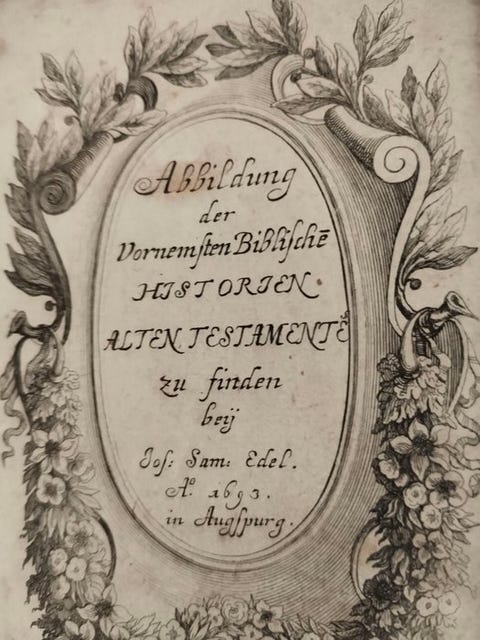 Abbildung
der
Vornemsten Biblischē
HISTORIEN
ALTEN TESTAMENTE
zu finden
beij
Jos: Sam: Edel.
Aº 1693.
in Augspurg.